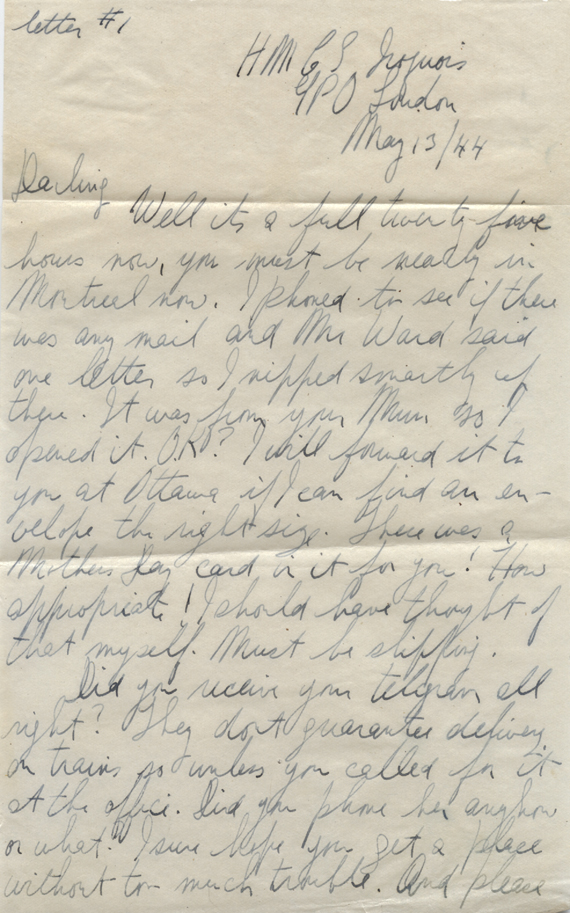 letter #1
HMCS Iroquois
GPO London
May 13/44
Darling
Well its a full twenty five
hours now, you must be nearly in
Montreal now. I phoned to see if there
was any mail and Mrs Ward said
one letter so I nipped smartly up
there. It was from your Mum so I
opened it. OK? I will forward it to
you at Ottawa if I can find an en-
velope the right size. There was a
Mothers Day card in it for you! How
appropriate! I should have thought of
that myself. Must be slipping.
Did you receive your telegram all
right? They dont guarantee delivery
on trains so unless you called for it
at the office. Did you phone her anyhow
or what? I sure hope you get a place
without too much trouble. And please